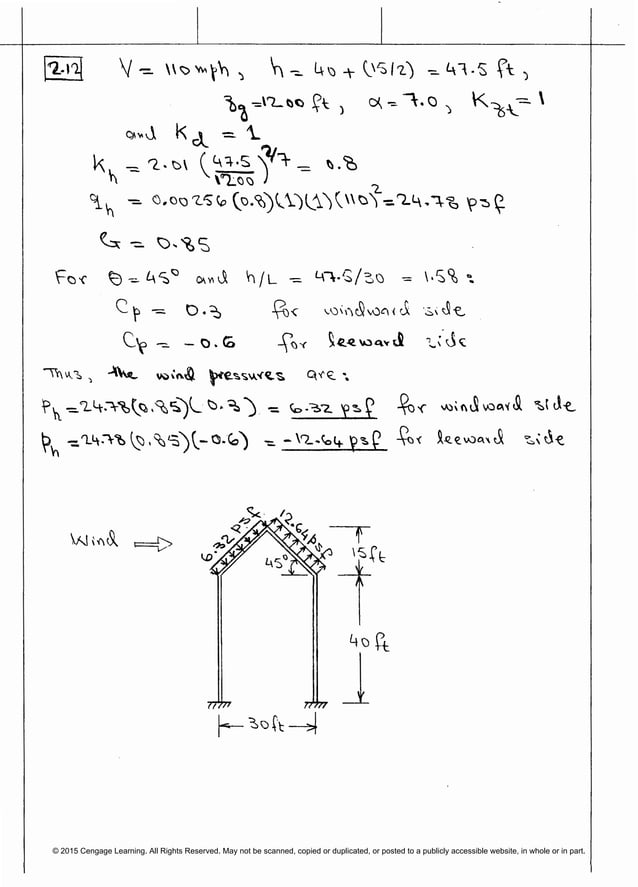 2.12 V = 110 mph, h = 40 + (15/2) = 47.5 ft,
zg = 1200 ft, α = 7.0, Kzt = 1
and Kd = 1
Kh = 2.01 (47.5/1200)^2/7 = 0.8
qh = 0.00256 (0.8)(1)(1)(110)^2 = 24.78 psf
G = 0.85
For θ = 45° and h/L = 47.5/30 = 1.58 :
Cp = 0.3 for windward side
Cp = -0.6 for leeward side
Thus, the wind pressures are :
Ph = 24.78(0.85)(0.3) = 6.32 psf for windward side
Ph = 24.78(0.85)(-0.6) = -12.64 psf for leeward side
6.32 psf
12.64 psf
Wind
45°
15 ft
40 ft
30 ft
© 2015 Cengage Learning. All Rights Reserved. May not be scanned, copied or duplicated, or posted to a publicly accessible website, in whole or in part.